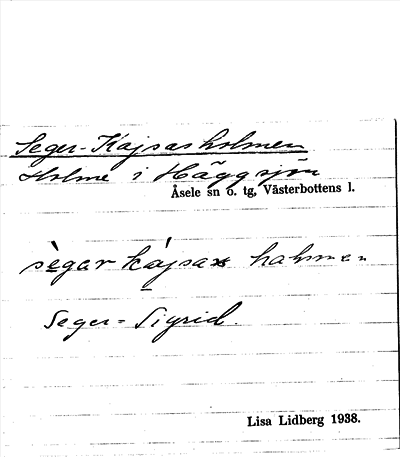 Seger-Kajsasholmen
Holme i Häggsjön
Åsele sn o. tg, Västerbottens l.
sègar kájsax halmen
Seger-Sigrid.
Lisa Lidberg 1938.